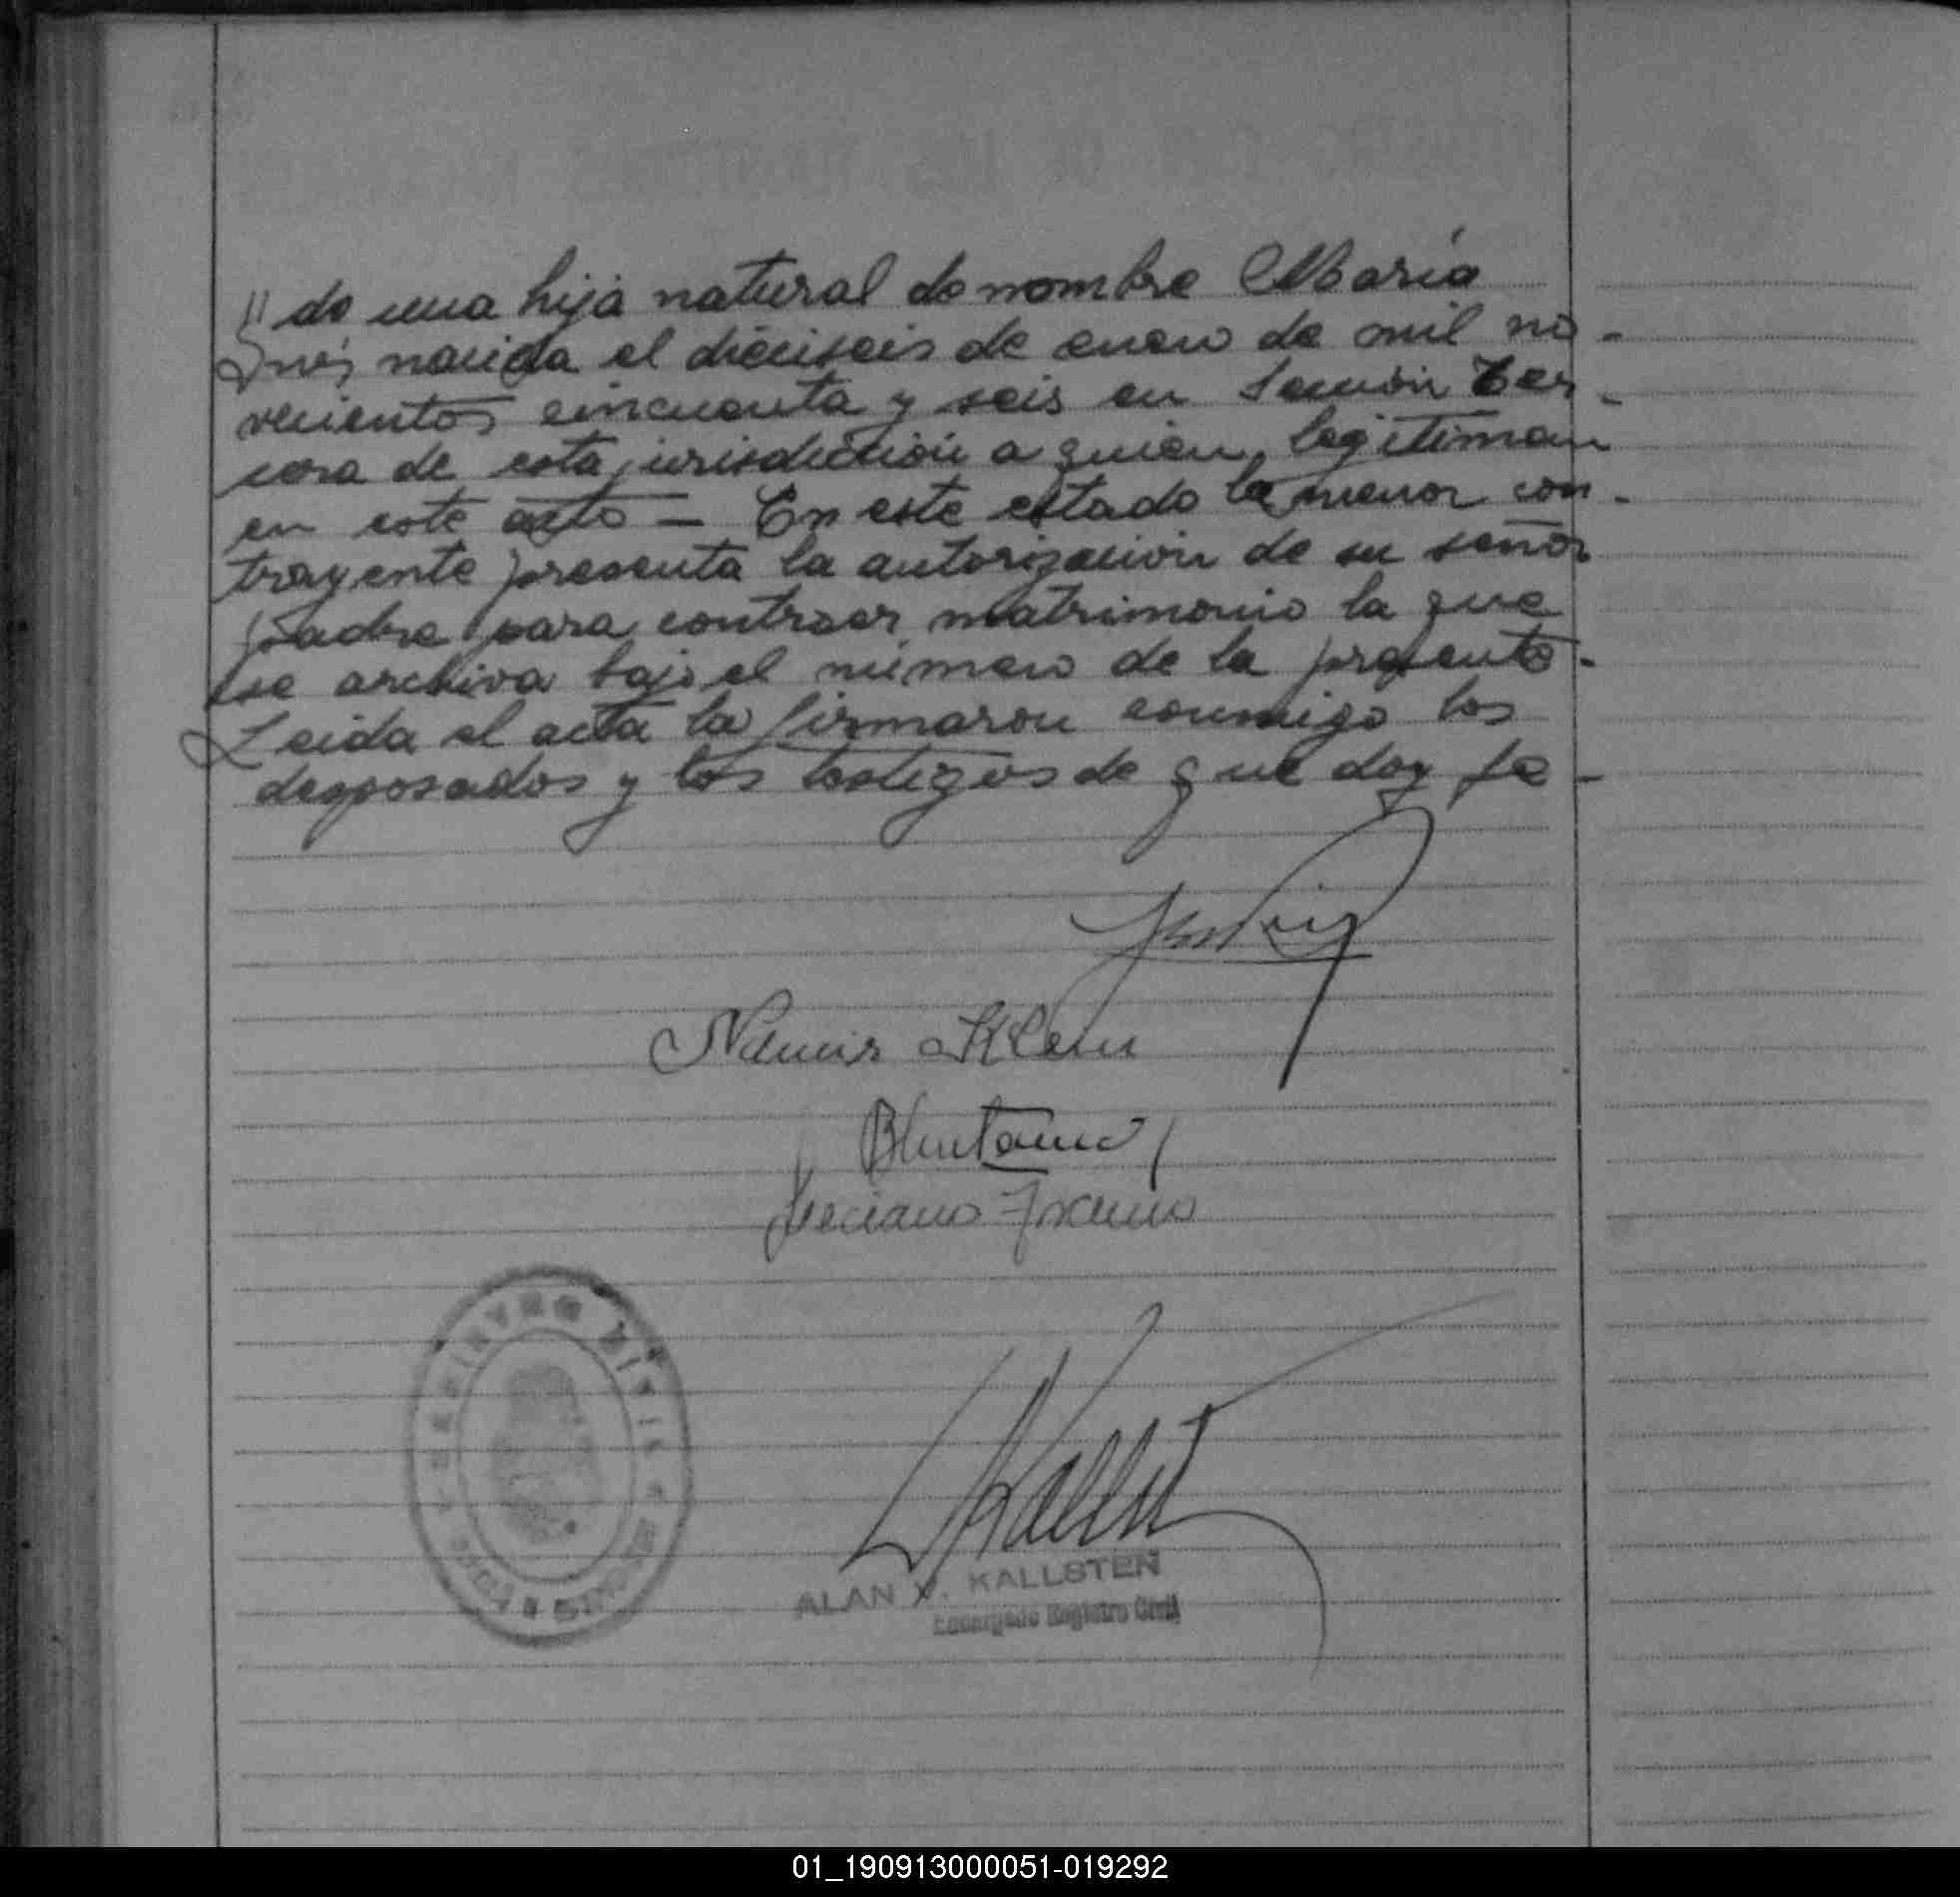 // do una hija natural de nombre María
Inés nacida el dieciseis de enero de mil no-
vecientos cincuenta y seis en Sección Ter-
cera de esta jurisdicción a quien legitiman
en este acto — En este estado la menor con-
trayente presenta la autorización de su señor
padre para contraer matrimonio la que
se archiva bajo el número de la presente-
Leida el acta la firmaron conmigo los
desposados y los testigos de que doy fe-
Klein
Luciano
ALAN V. KALLSTEN
Encargado Registro Civil
01_190913000051-019292